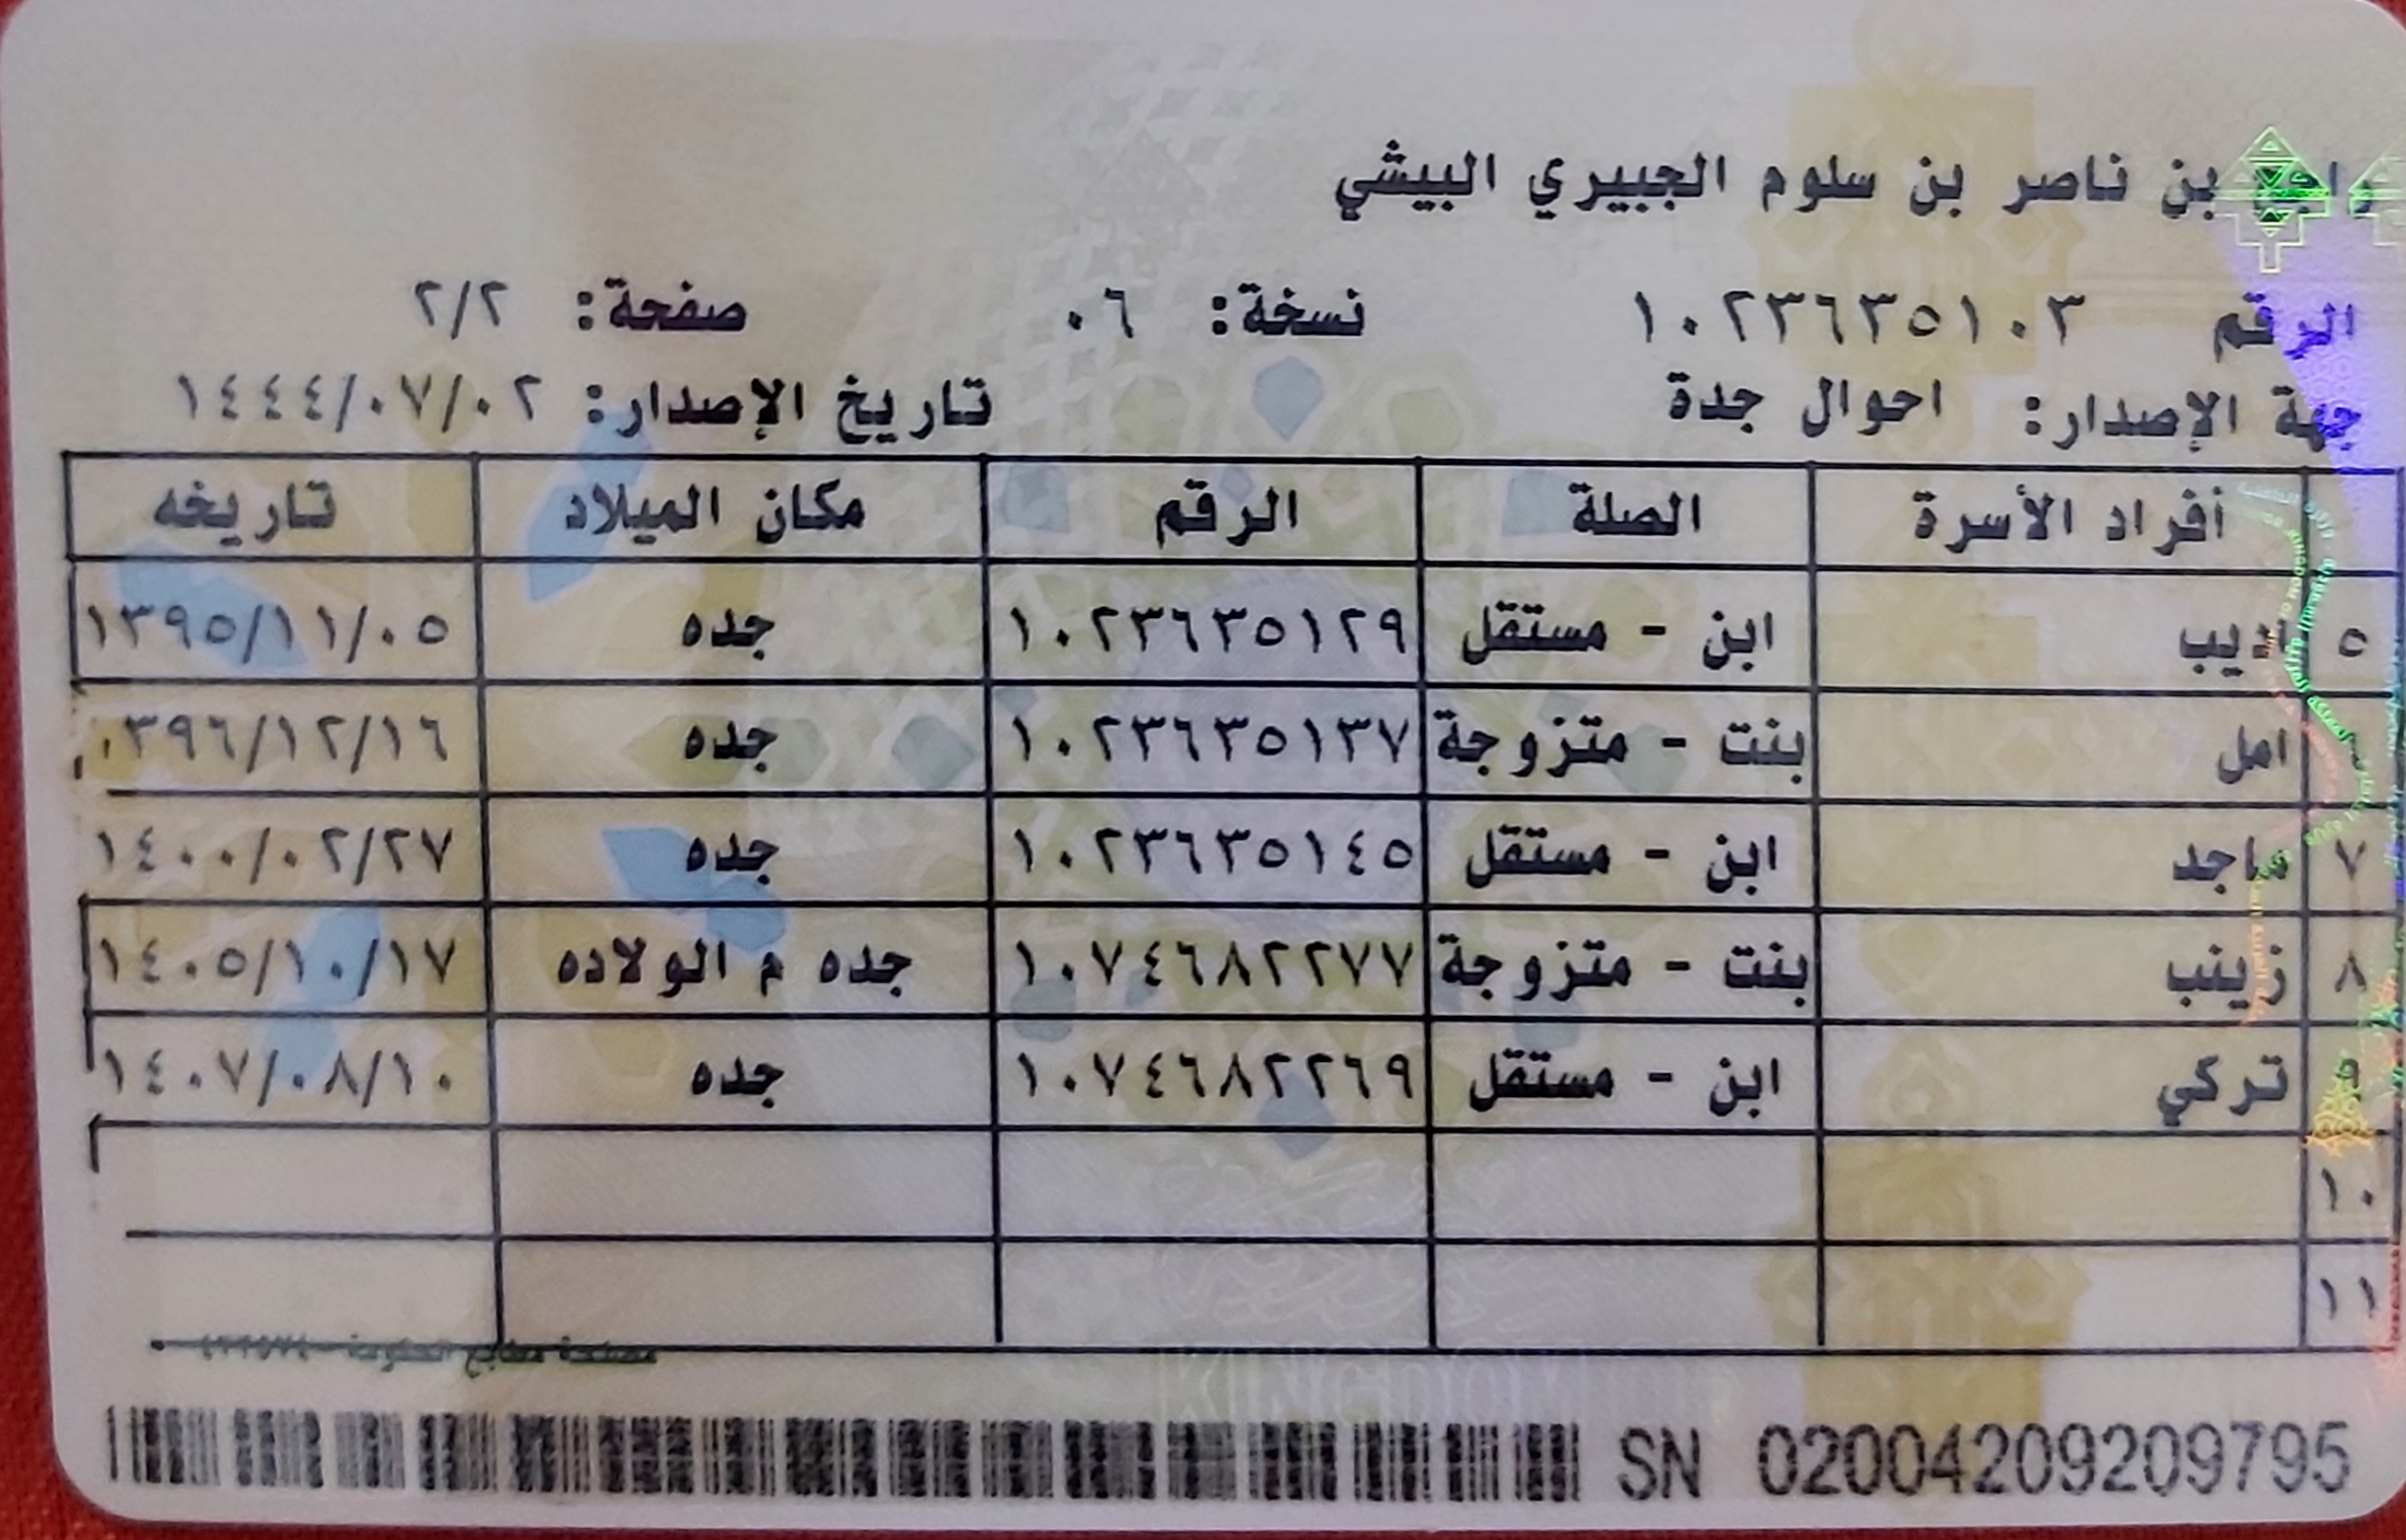 راجح بن ناصر بن سلوم الجبيري البيشي
الرقم ١٠٢٣٦٣٥١٠٣ نسخة: ٠٦ صفحة: ٢/٢
جهة الإصدار: احوال جدة تاريخ الإصدار: ١٤٤٤/٠٧/٠٢
أفراد الأسرة الصلة الرقم مكان الميلاد تاريخه
٥ اديب ابن - مستقل ١٠٢٣٦٣٥١٢٩ جده ١٣٩٥/١١/٠٥
امل بنت - متزوجة ١٠٢٣٦٣٥١٣٧ جده ١٣٩٦/١٢/١٦
٧ ماجد ابن - مستقل ١٠٢٣٦٣٥١٤٥ جده ١٤٠٠/٠٢/٢٧
٨ زينب بنت - متزوجة ١٠٧٤٦٨٢٢٧٧ جده م الولاده ١٤٠٥/١٠/١٧
٩ تركي ابن - مستقل ١٠٧٤٦٨٢٢٦٩ جده ١٤٠٧/٠٨/١٠
١٠
١١
SN 02004209209795